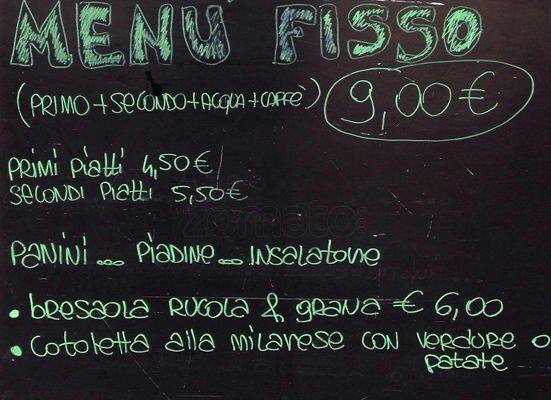 MENU' FISSO
(PRIMO+SECONDO+ACQUA+CAFFÈ) 9,00 €
PRIMI PIATTI 4,50 €
SECONDI PIATTI 5,50 €
zomato
PANINI... PIADINE... INSALATONE
• bresaola RUCOLA & GRANA € 6,00
• COTOLETTA alla MILANESE CON VERDURE O
PATATE